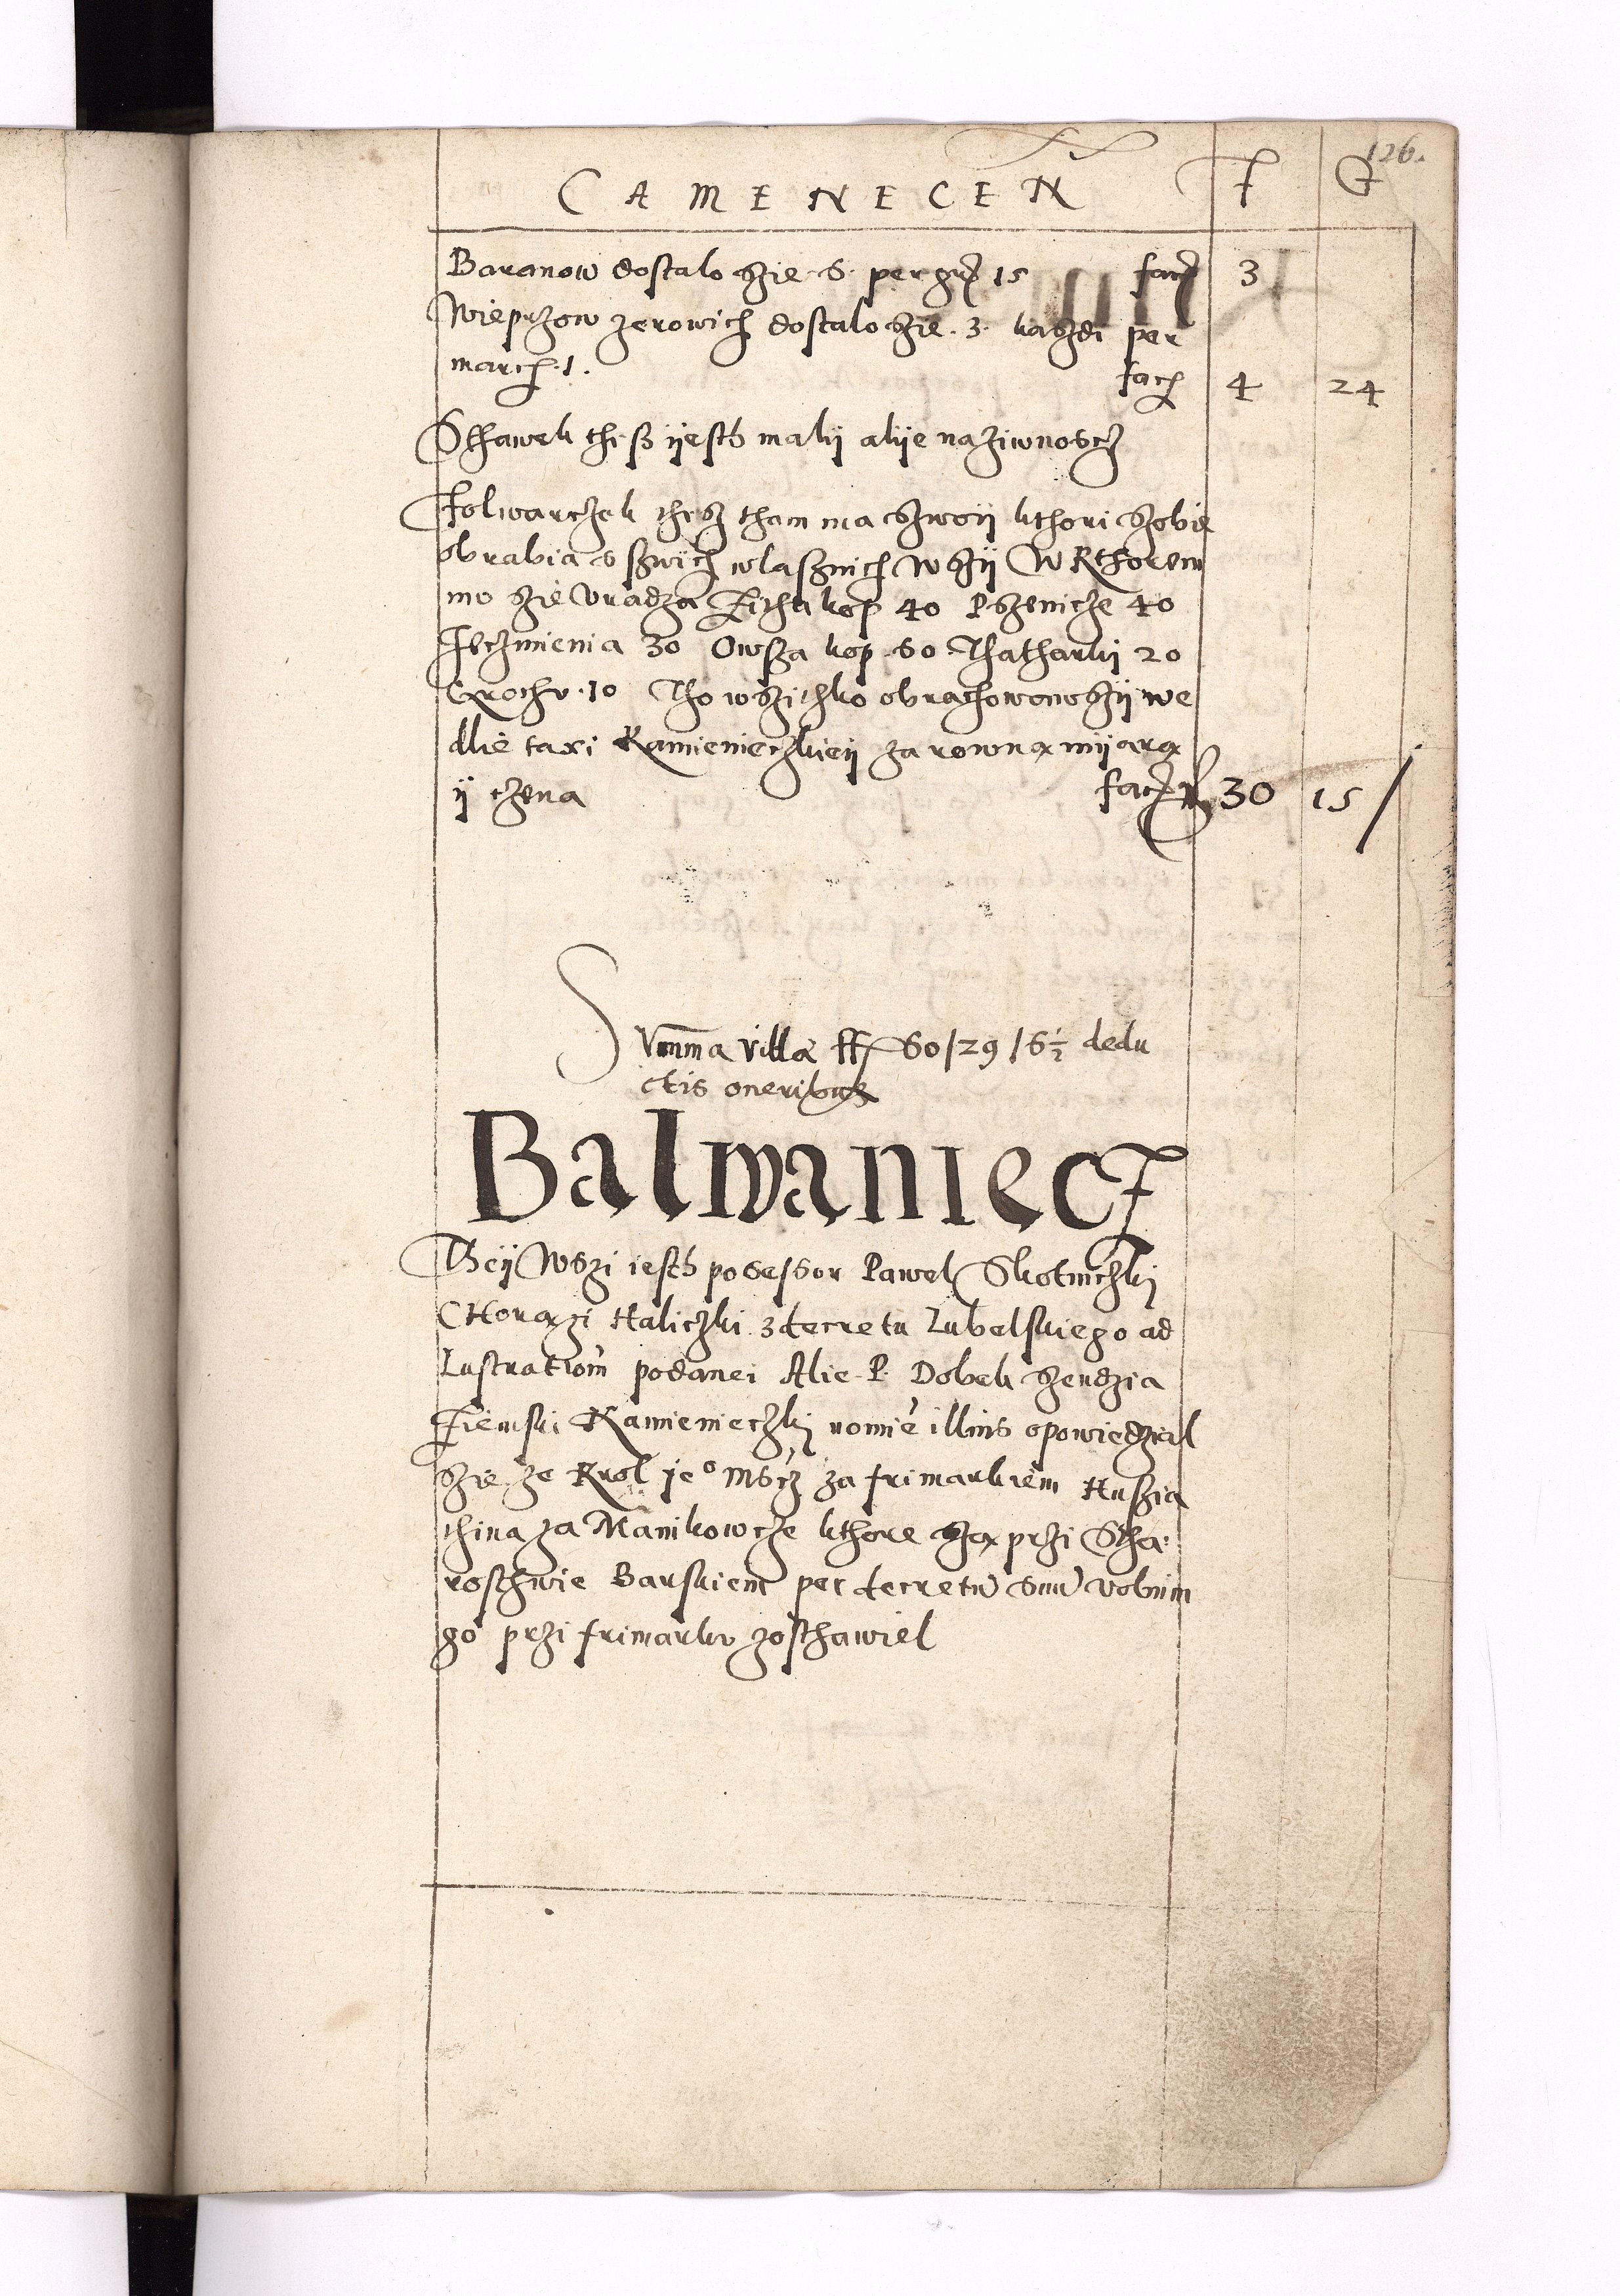 126.
CAMENECEN F G
Baranow dostalo szie 6 per gr 15 facz 3
Wieprzow zerowich dostalo szie .3. kaszdi per
march .1. fach 4 24
Sthawek thesz ijesth malij alije naziwnoscz
Folwarczek thesz tham ma szwoij kthori szobie
obrabia s szwich wlasznich wszij W Kthorem
mo szie vradza Zitha kop 40 Pszenicze 40
Jeczmienia 30 Owsza kop 60 Thatharki 20
Grochv .10 Tho wszithko obrachowanoszij we
dlie taxi Kamienieczkieij za rowną mijarą
ij czena facz 30 15 /
Summa villae ff 60/29/6½ dedu
ctis oneribus
Balwaniecz
Theij Wszi iesth posessor Pawel Skotniczkij
CHorązi Haliczki z decretu Lubelskiego ad
Lustrationem podanei Alie P. Dobek szendzia
Ziemski Kamienieczkij nomine illius opowiedzial
szie ze Krol jeo Mscz za frimarkiem Huszia
thina za Manikowcze kthore szą przi Stha
rosthwie Barskiem per decretum suum volnim
go przi frimarkv zosthawiel